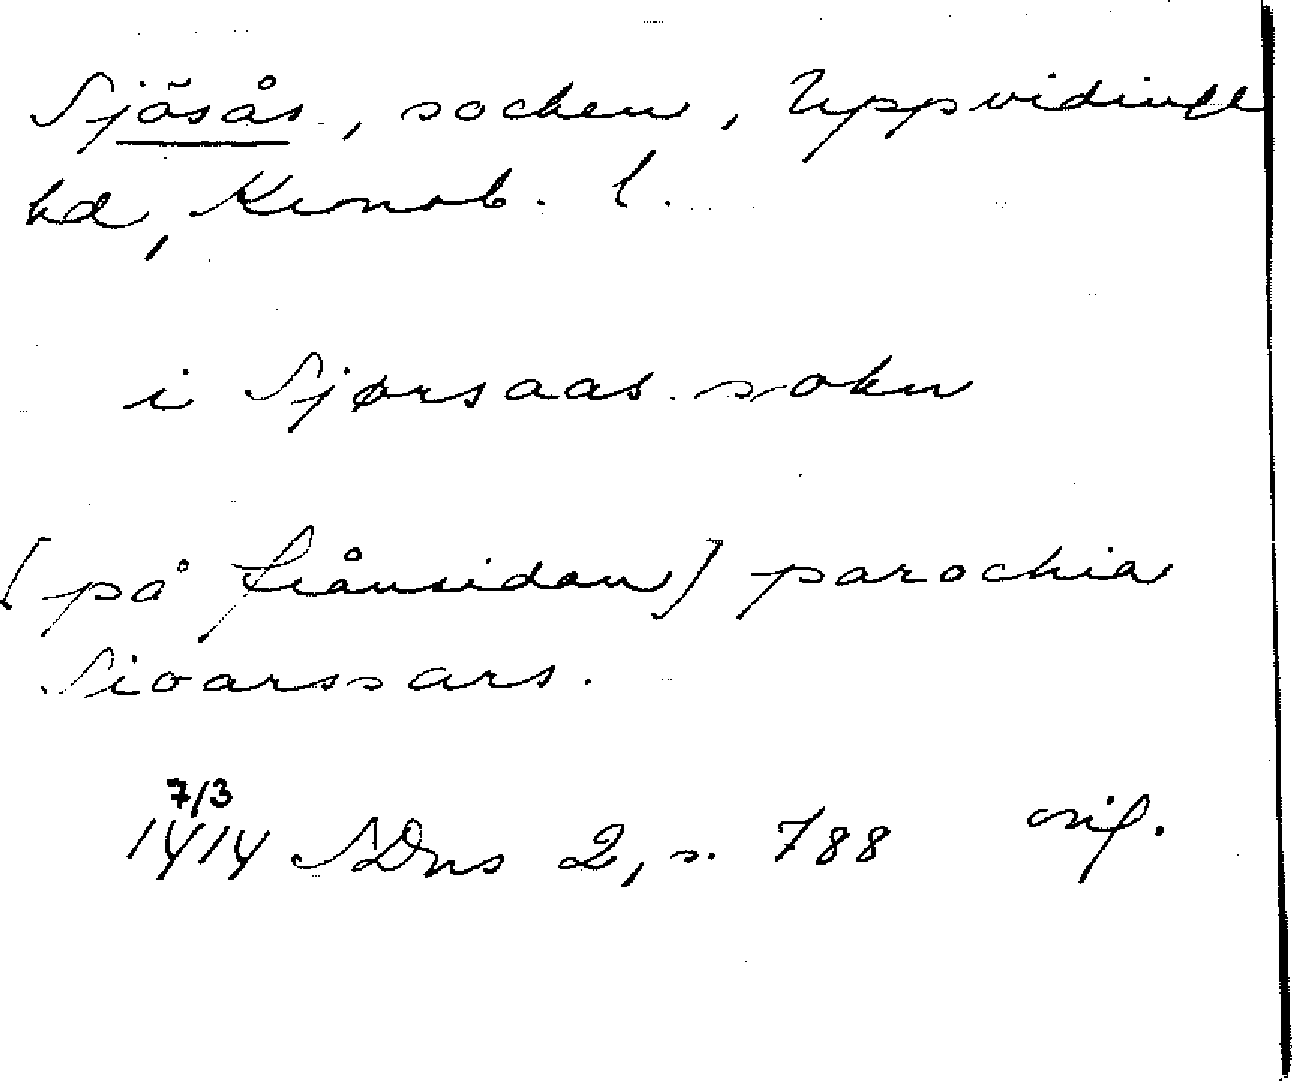 Sjösås, socken, Uppvidinge
hd, Kronob. l.
i Sjørsaas sokn
[på frånsidan] parochia
Sioarssars.
7/3
1414 SDns 2, s. 788 orig.